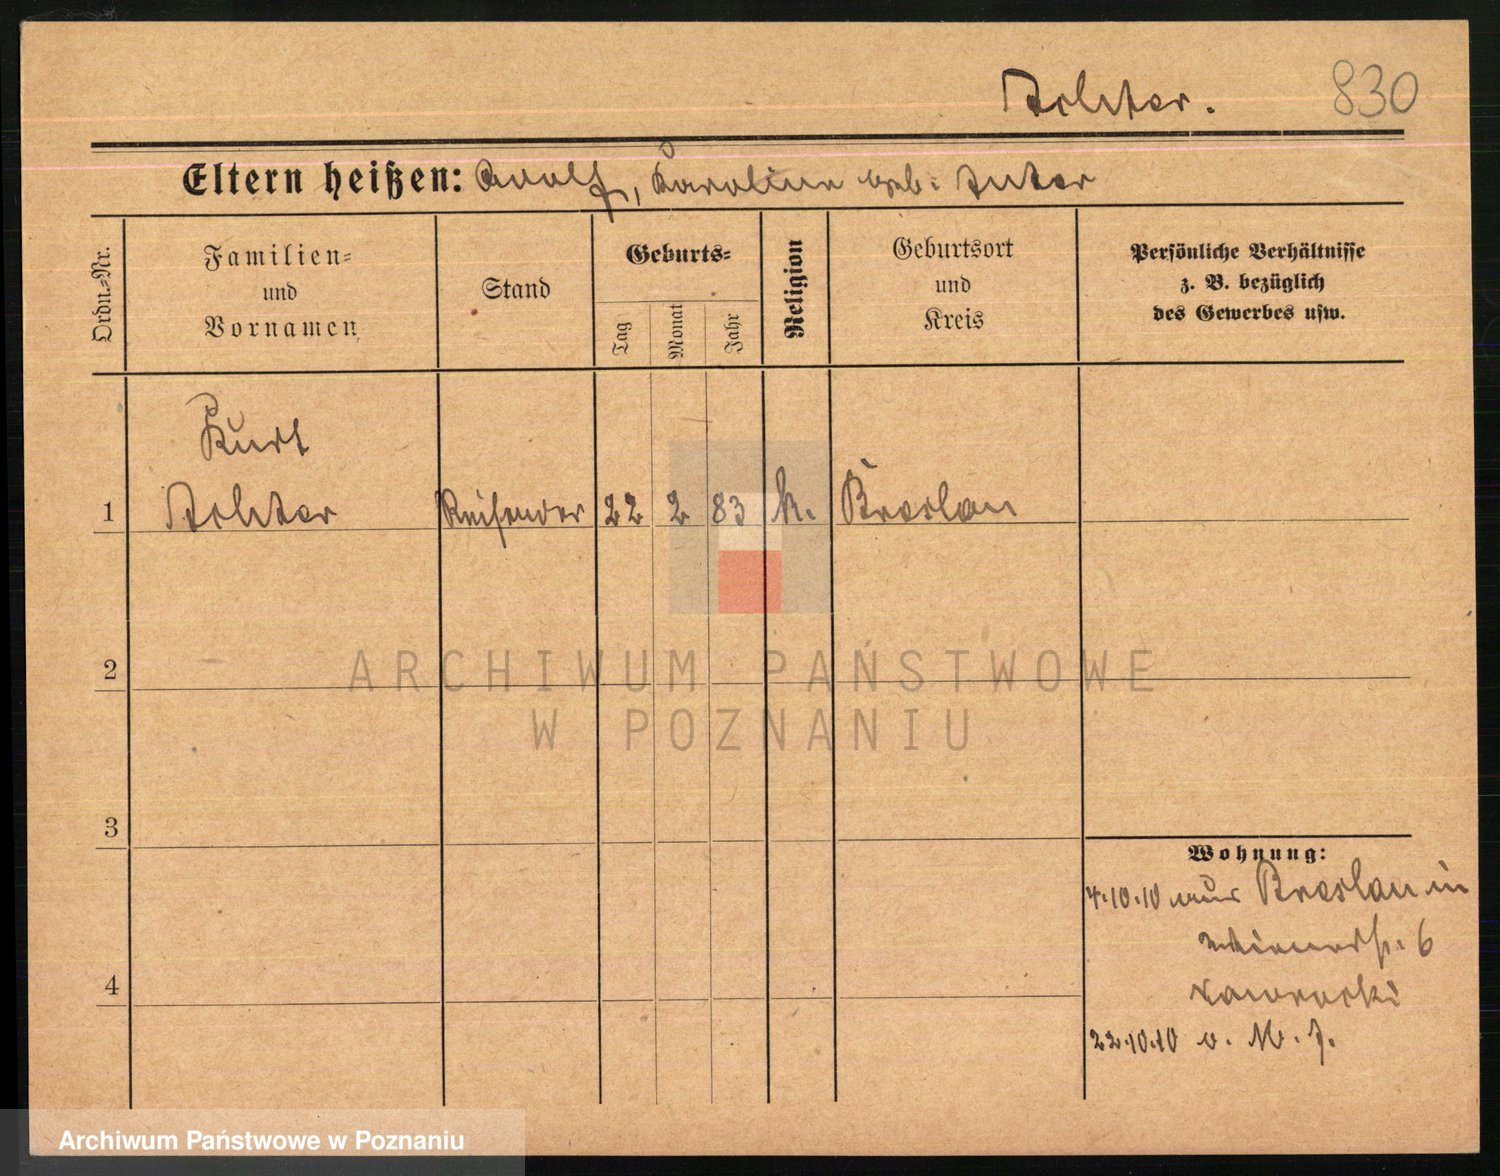 830
Eltern heißen: Adolf, Karoline geb.
Ordn.-Nr.
Familien-
und
Vornamen
Stand
Geburts-
Tag
Monat
Jahr
Religion
Geburtsort
und
Kreis
Persönliche Verhältnisse
z. B. bezüglich
des Gewerbes usw.
Kurt
1 Reisender 22 2 83 k. Breslau
2
3
4
Wohnung:
4.10.10 aus Breslau in
6
22.10.10
ARCHIWUM PAŃSTWOWE
W POZNANIU
Archiwum Państwowe w Poznaniu